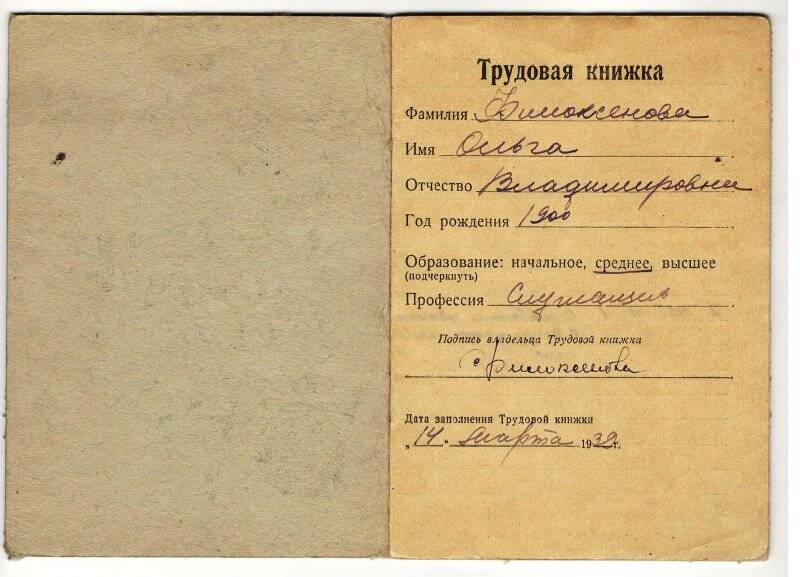 Трудовая книжка
Фамилия Филоксенова
Имя Ольга
Отчество Владимировна
Год рождения 1900
Образование: начальное, среднее, высшее
(подчеркнуть)
Профессия Служащий
Подпись владельца Трудовой книжки
Филоксенова
Дата заполнения Трудовой книжки
„14“ марта 1939г.